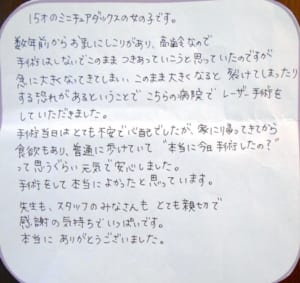 15才のミニチュアダックスの女の子です。
数年前からお乳にしこりがあり、高齢なので
手術はしないでこのままつきあっていこうと思っていたのですが
急に大きくなってきてしまい、このまま大きくなると裂けてしまったり
する恐れがあるということでこちらの病院でレーザー手術を
していただきました。
手術当日はとても不安で心配でしたが、家に帰ってきてから
食欲もあり、普通に歩けていて"本当に今日手術したの?"
って思うぐらい元気で安心しました。
手術をして本当によかったと思っています。
先生も、スタッフのみなさんもとても親切で
感謝の気持ちでいっぱいです。
本当にありがとうございました。